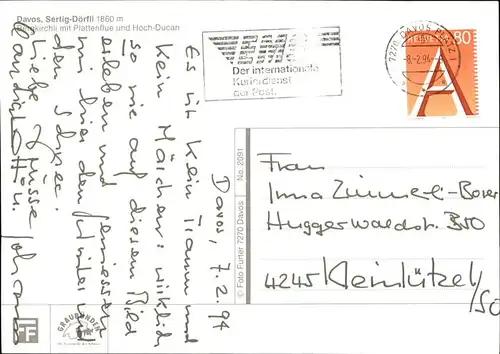 Davos, Sertig-Dörfli 1860 m
Bergkirchli mit Plattenflue und Hoch-Ducan
Davos, 7.2.94
Es ist kein Traum und
kein Märchen: wirklich
so wie auf diesem Bild
erleben und geniessen
wir hier den Winter und
den Schnee.
Liebe Grüsse
Der internationale
Kurierdienst
der Post.
7270 DAVOS PLATZ 1
-8.-2.94
80
A
© Foto Furter 7270 Davos
No. 2091
GRAUBÜNDEN
FF
Frau
Irma Zimmerli-Borer
Huggerwaldstr. 350
4245 Kleinlützel/SO